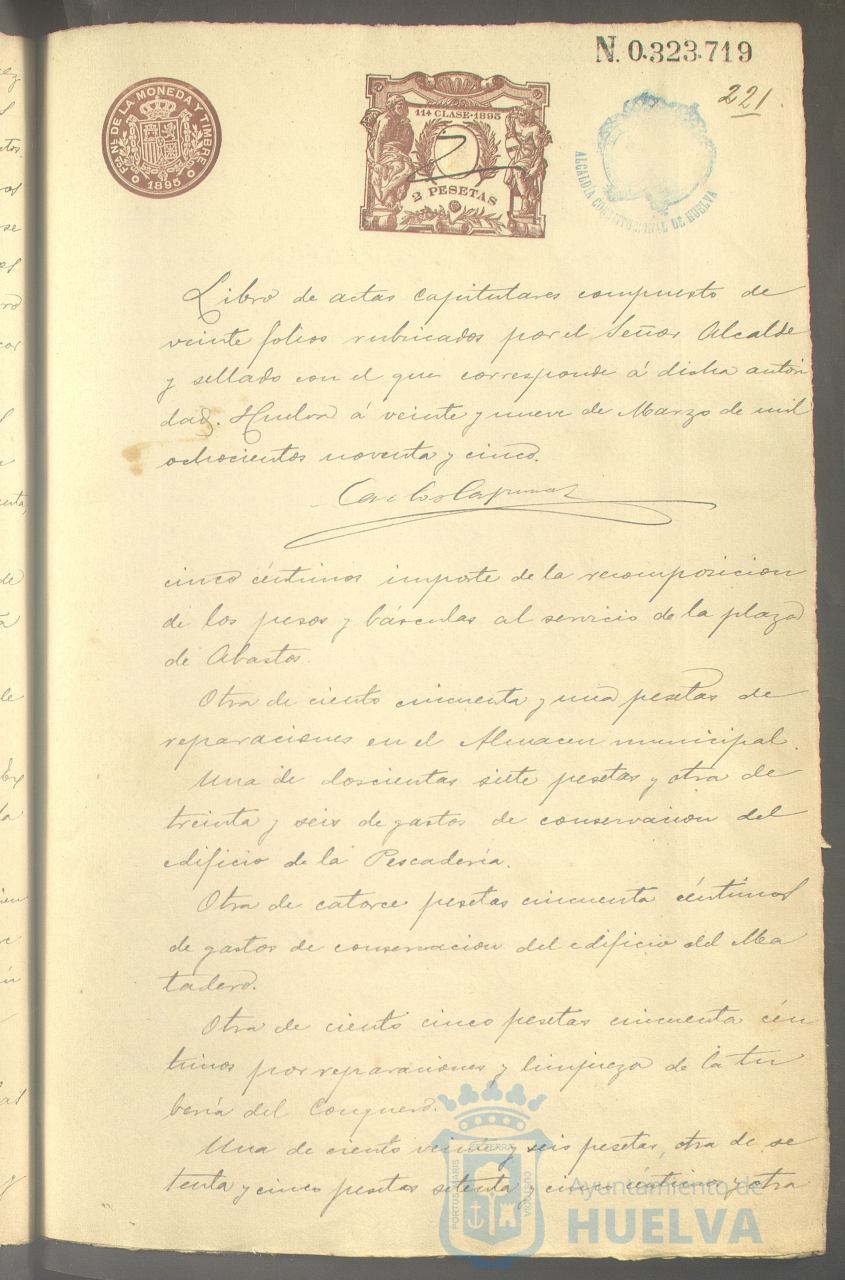 N. 0.323.719
221.
FCA. NL. DE LA MONEDA Y TIMBRE
1895
11ª CLASE·1895
2 PESETAS
ALCALDÍA CONSTITUCIONAL DE HUELVA
Libro de actas capitulares compuesto de
veinte folios rubricados por el Señor Alcalde
y sellado con el que corresponde á dicha autori
dad. Huelva á veinte y nueve de Marzo de mil
ochocientos noventa y cinco.
Carlos
cinco céntimos importe de la recomposicion
de los pesos y básculas al servicio de la plaza
de Abastos.
Otra de ciento cincuenta y una pesetas de
reparaciones en el Almacen municipal.
Una de doscientas siete pesetas y otra de
treinta y seis de gastos de conservacion del
edificio de la Pescadería.
Otra de catorce pesetas cincuenta céntimos
de gastos de conservacion del edificio del Ma
tadero.
Otra de ciento cinco pesetas cincuenta cén
timos por reparaciones y limpieza de la tu
bería del Conquero.
Una de ciento veinte y seis pesetas, otra de se
tenta y cinco pesetas setenta y cinco céntimos y otra
PORTUS MARIS ET TERRAE CUSTODIA
Ayuntamiento de
HUELVA